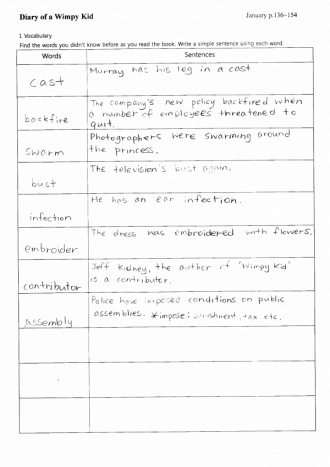 Diary of a Wimpy Kid
January p.136~154
I. Vocabulary
Find the words you didn't know before as you read the book. Write a simple sentence using each word.
Words
Sentences
cast
Murray has his leg in a cast
backfire
The company's new policy backfired when
a number of employees threatened to
quit.
swarm
Photographers were swarming around
the princess.
bust
The television's bust again.
infection
He has an ear infection.
embroider
The dress was embroidered with flowers.
contributor
Jeff Kidney, the author of 'Wimpy Kid'
is a contributor.
assembly
Police have imposed conditions on public
assemblies. *impose: punishment, tax etc.